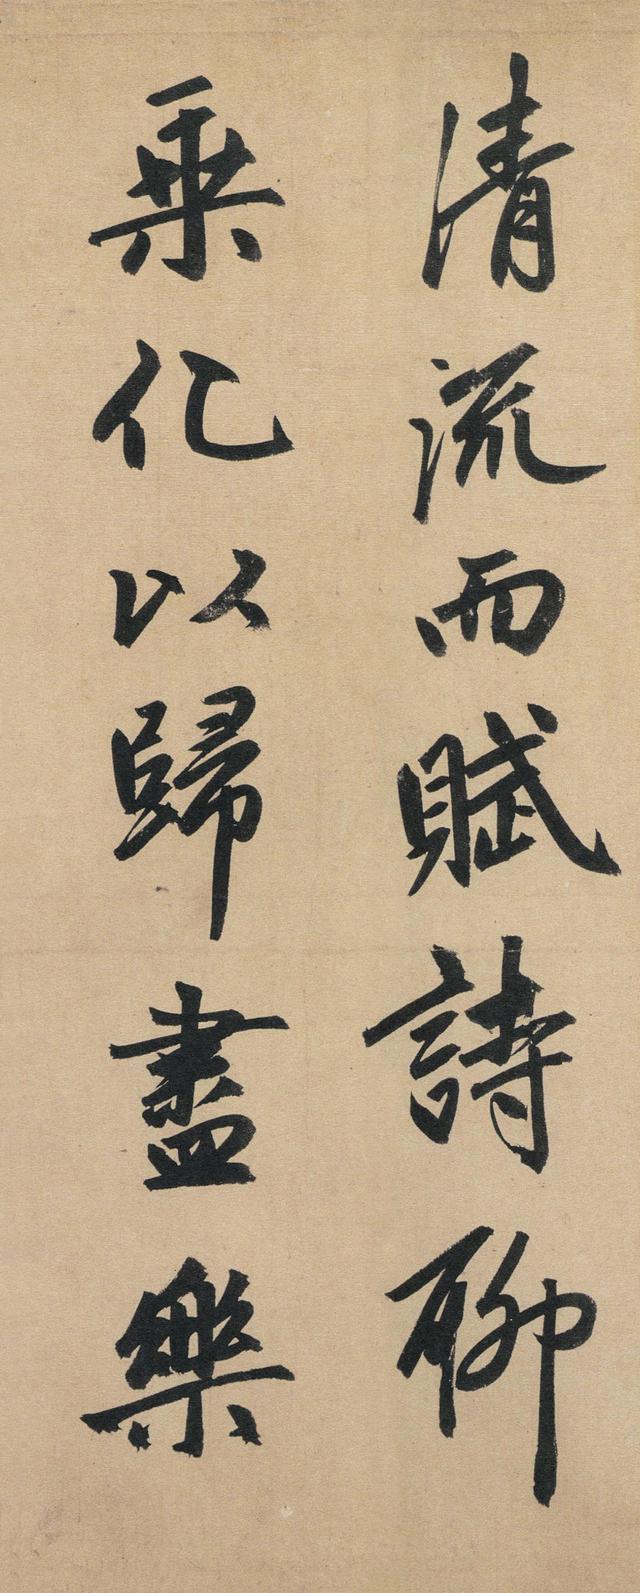 清流而賦詩聊
乘化以歸盡樂